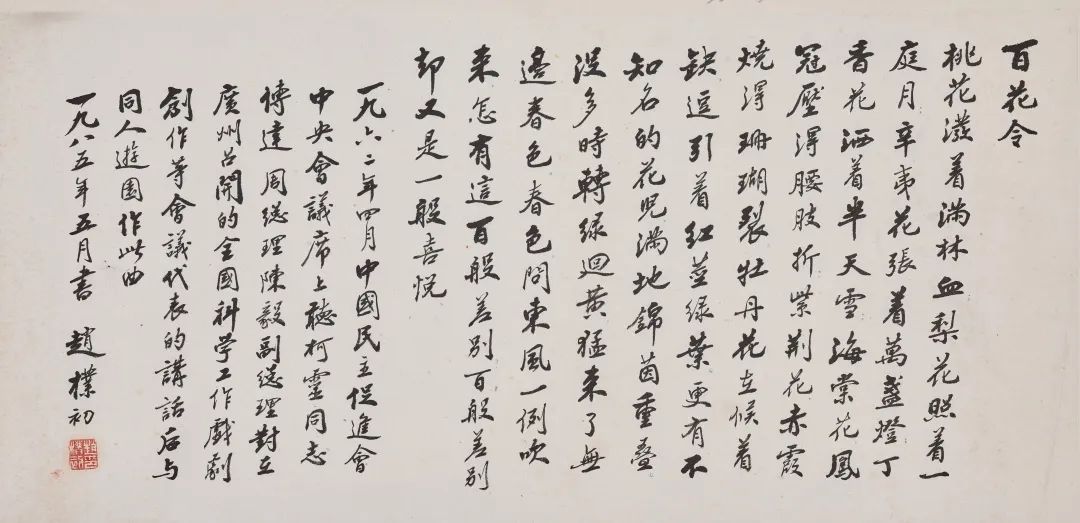 百花令
桃花潑着滿林血梨花照着一
庭月辛夷花張着萬盞燈丁
香花洒着半天雪海棠花鳳
冠壓得腰肢折紫荆花赤霞
燒得珊瑚裂牡丹花在候着
缺逗引着紅莖綠葉更有不
知名的花兒滿地錦茵重叠
沒多時轉綠迴黃猛来了無
邊春色春色問東風一例吹
来怎有這百般差別百般差別
却又是一般喜悦
一九六二年四月中國民主促進會
中央會議席上聽柯靈同志
傳達周總理陳毅副總理對在
廣州召開的全國科学工作戲劇
創作等會議代表的講話后与
同人遊園作此曲
一九八五年五月書 趙樸初